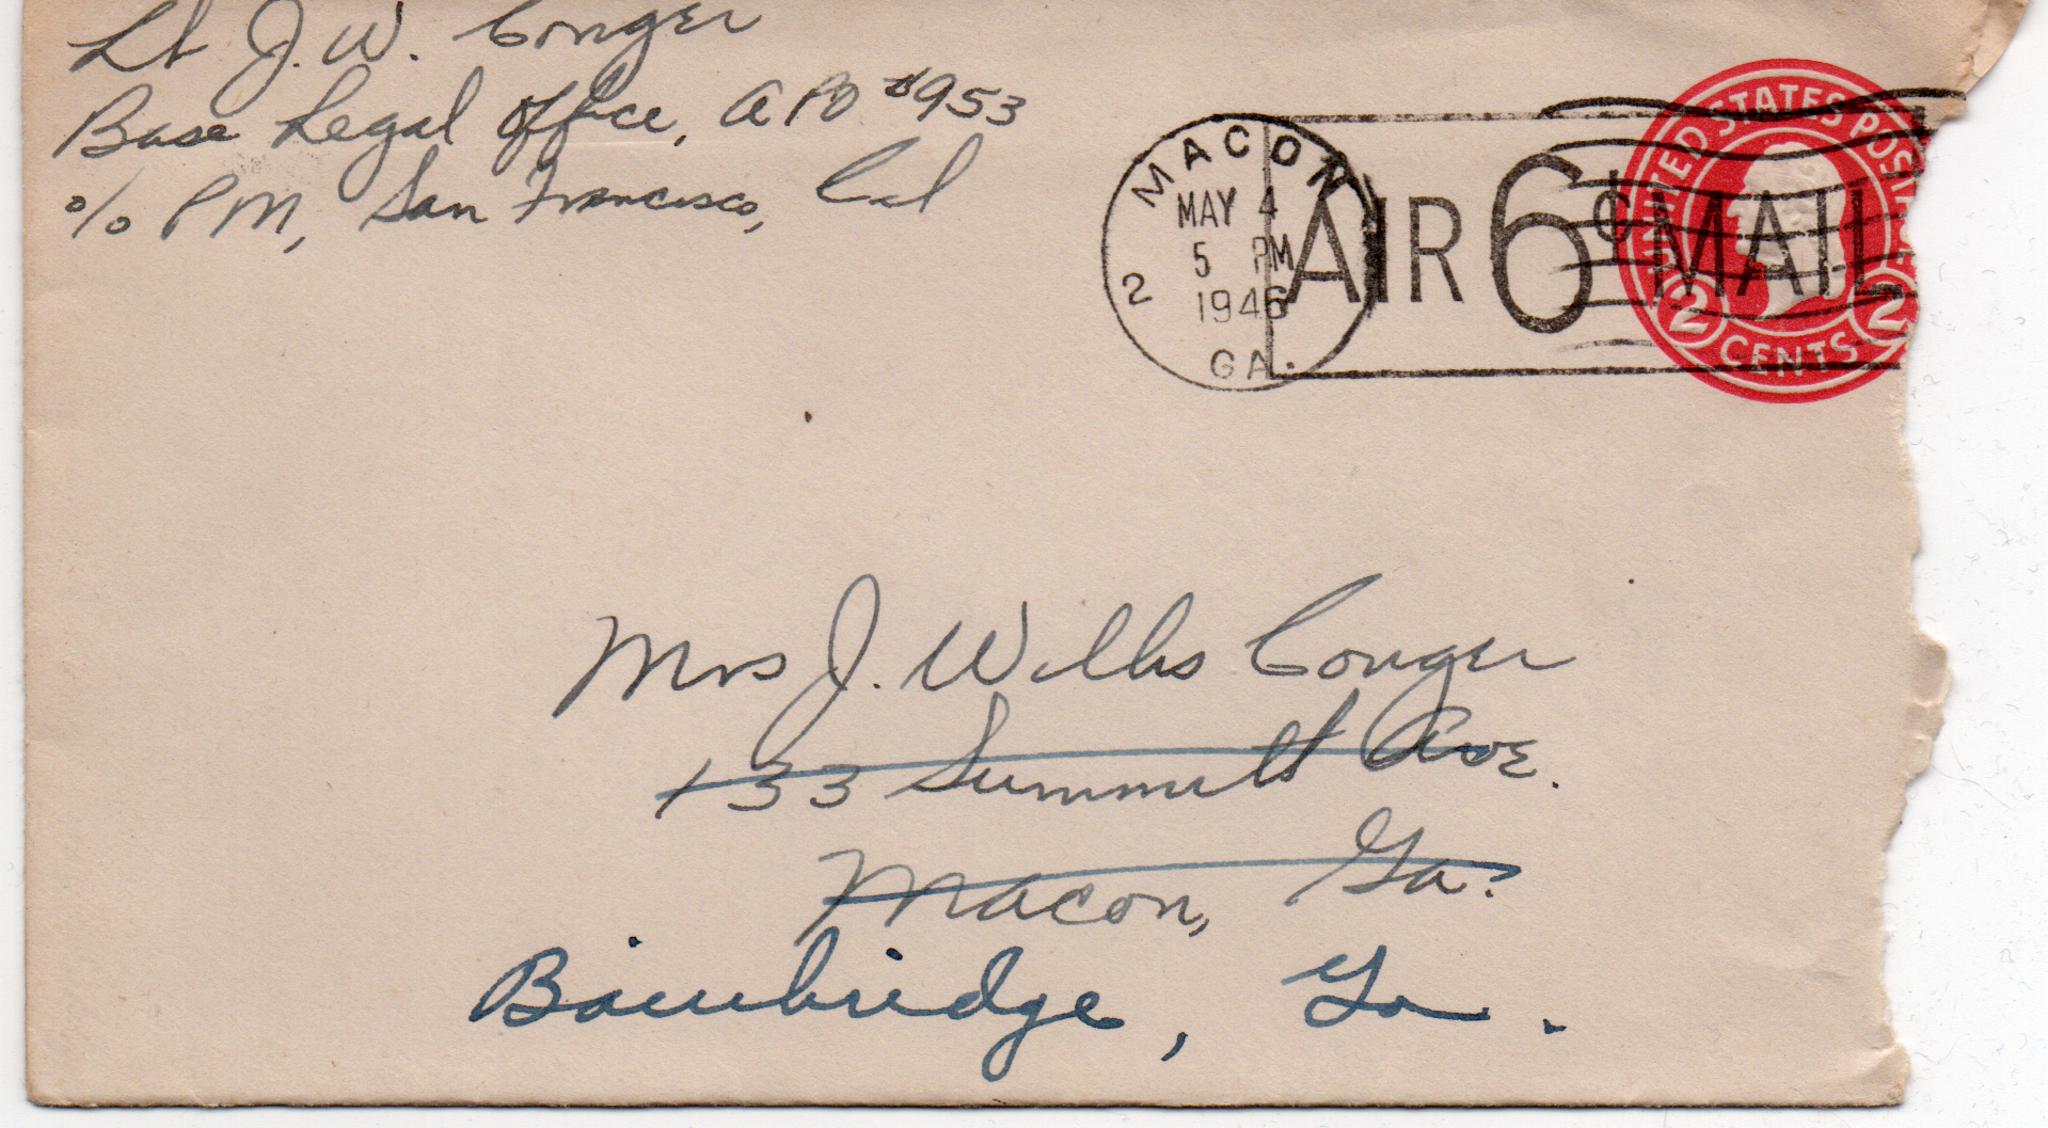 Lt J. W. Conger
Base Legal Office, APO #953
c/o PM, San Francisco, Cal
MACON
MAY 4
5 PM
1946
2
GA.
AIR 6¢ MAIL
UNITED STATES POSTA
2 CENTS 2
Mrs J. Willis Conger
133 Summitt Ave.
Macon, Ga.
Bainbridge, Ga.